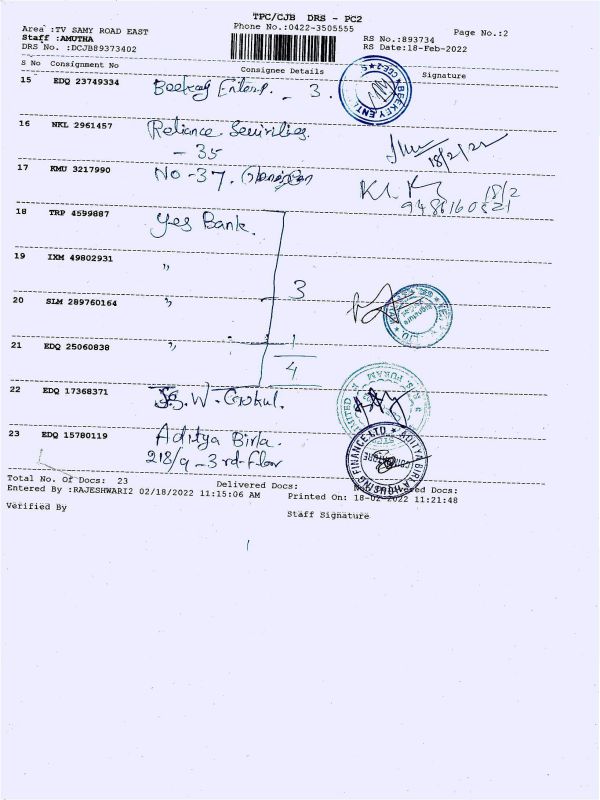 TPC/CJB DRS - PC2
Area :TV SAMY ROAD EAST
Phone No.:0422-3505555
Page No.:2
Staff :AMUTHA
RS No.:893734
DRS No. :DCJB89373402
RS Date:18-Feb-2022
S No Consignment No Consignee Details Signature
15 EDQ 23749334 Beekay Enterp. - 3.
BEEKEY ENT
16 NKL 2961457 Reliance Securities
- 35
18/2/22
17 KMU 3217990 No - 37.
18/2
18 TRP 4599887 Yes Bank.
19 IXM 49802931 "
3
20 SLM 289760164 "
21 EDQ 25060838 " 1
4
22 EDQ 17368371 W. Gokul.
23 EDQ 15780119 Aditya Birla.
218/9 - 3rd-Floor
ADITYA BIRLA HOUSING FINANCE LTD.
COIMBATORE
Total No. Of Docs: 23 Delivered Docs:
Docs:
Entered By :RAJESHWARI2 02/18/2022 11:15:06 AM Printed On: 18-02-2022 11:21:48
Verified By Staff Signature